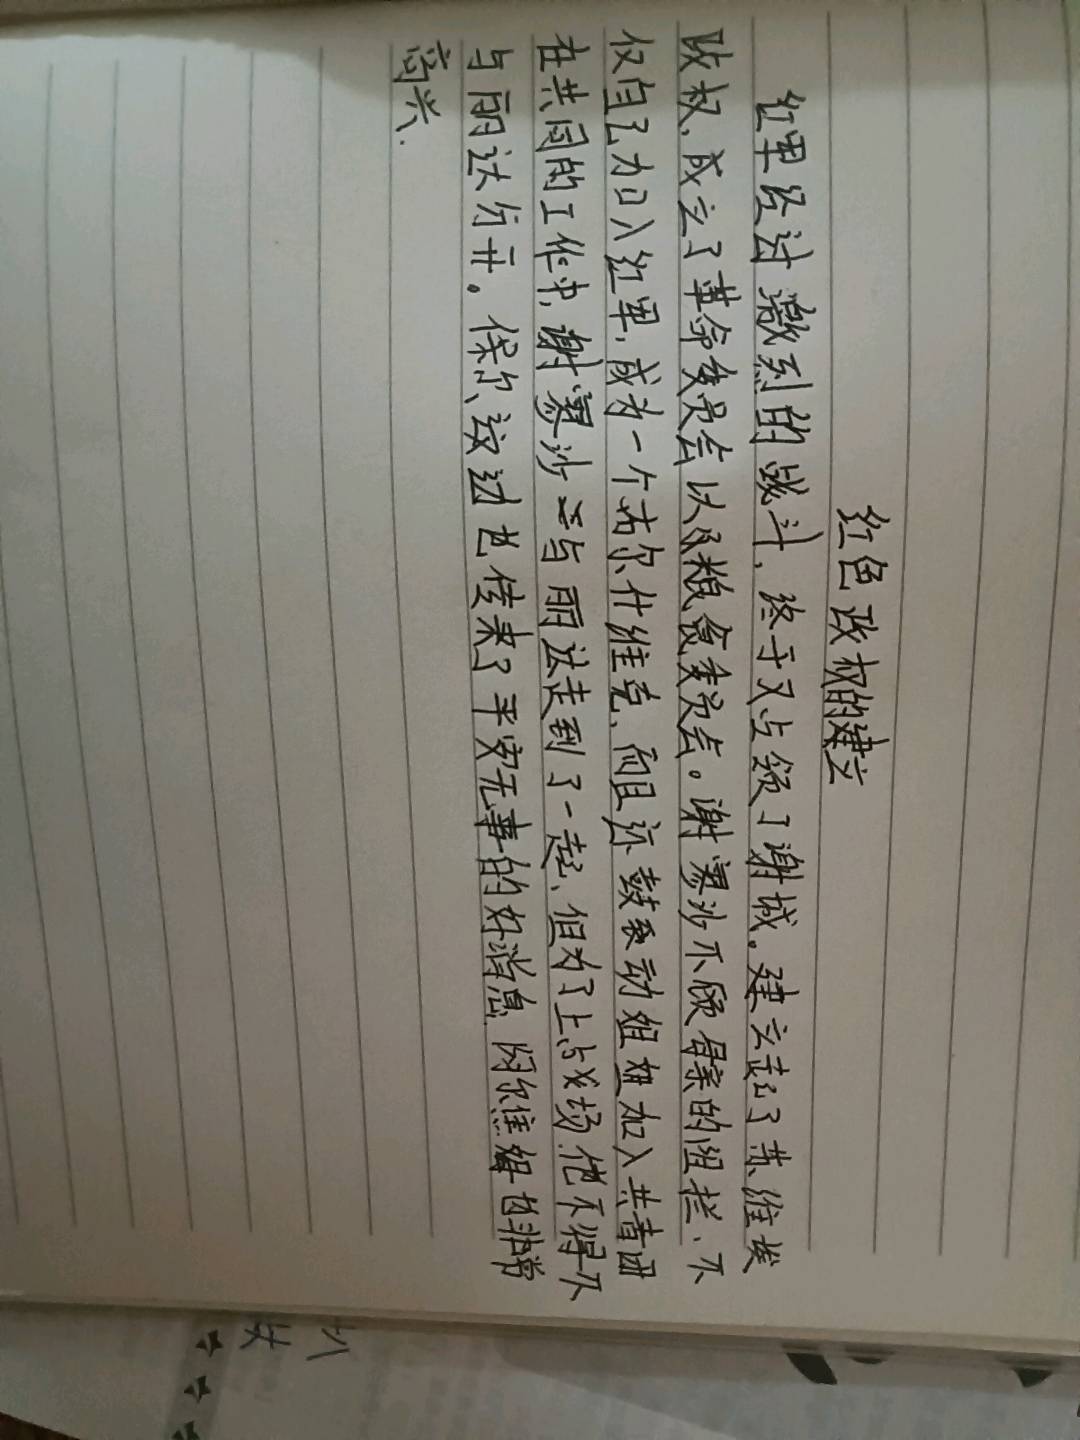 红色政权的建立
红军经过激烈的战斗，终于又占领了谢城。建立起了苏维埃
政权，成立了革命委员会以及粮食委员会。谢寥沙不顾母亲的阻拦、不
仅自己加入红军，成为一个布尔什维克，而且还鼓动姐姐加入共青团
在共同的工作中，谢寥沙与丽达走到了一起，但为了上战场他不得不
与丽达分开。保尔这边也传来了平安无事的好消息，阿尔焦姆自非常
高兴.